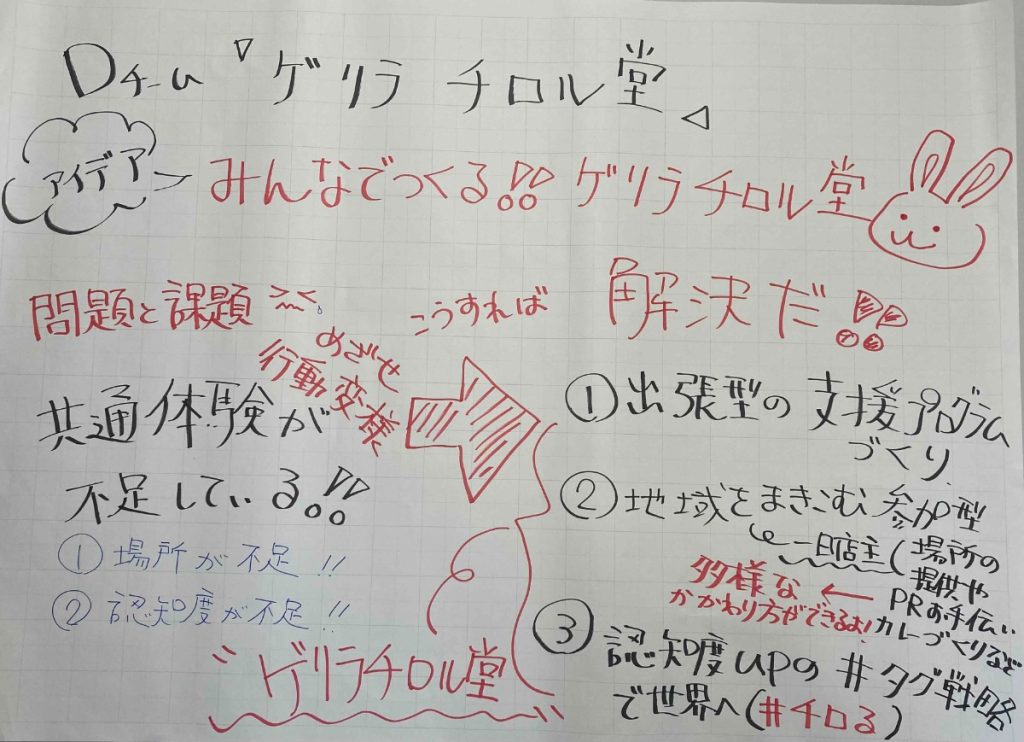 Dチーム『ゲリラ チロル堂』
アイデア
みんなでつくる!! ゲリラチロル堂
問題と課題
こうすれば
解決だ!!
めざせ
行動変様
共通体験が
不足している!!
① 場所が不足!!
② 認知度が不足!!
"ゲリラチロル堂"
① 出張型の支援プログラム
づくり
② 地域をまきこむ参加型
一日店主(場所の
提供や
PRお手伝い
カレーづくりなど
多様な
かかわり方ができるよ!
③ 認知度upの#タグ戦略
で世界へ(#チロる)